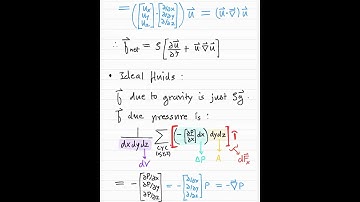 = ([u_x u_y u_z] · [∂/∂x ∂/∂y ∂/∂z]) u⃗ = (u⃗·∇⃗) u⃗
∴ f⃗_net = ρ[∂u⃗/∂t + u⃗·∇⃗u⃗]
• Ideal fluids :
f⃗ due to gravity is just ρg⃗.
f⃗ due pressure is :
1/dxdydz Σ_cyc [(-[∂P/∂x]dx) dydz] î
dV ΔP A dF_x
= -[∂P/∂x ∂P/∂y ∂P/∂z] = -[∂/∂x ∂/∂y ∂/∂z] P = -∇⃗P